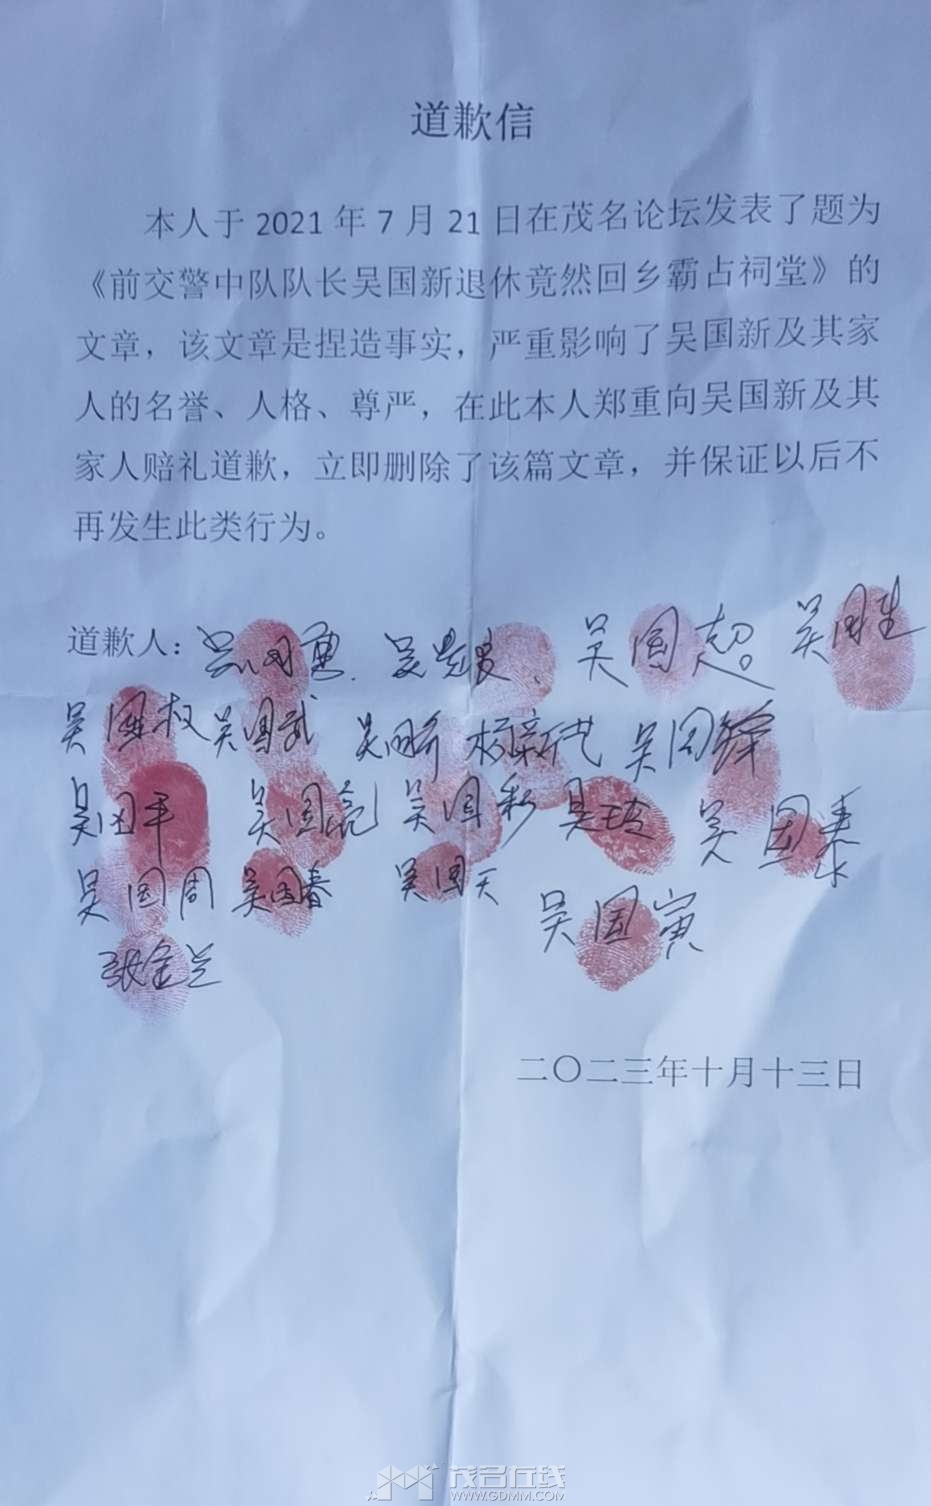 道歉信
本人于 2021 年 7 月 21 日在茂名论坛发表了题为
《前交警中队队长吴国新退休竟然回乡霸占祠堂》的
文章，该文章是捏造事实，严重影响了吴国新及其家
人的名誉、人格、尊严，在此本人郑重向吴国新及其
家人赔礼道歉，立即删除了该篇文章，并保证以后不
再发生此类行为。
道歉人：吴国 吴 吴国超。 吴国胜
吴国权 吴国武 吴国 杨 吴国锋
吴国平 吴国 吴国彩 吴 吴国
吴国周 吴国春 吴国天
吴国寅
张金兰
二〇二三年十月十三日
茂名在线
WWW.GDMM.COM